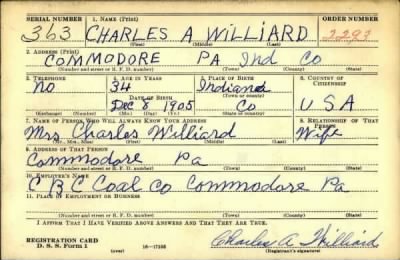 SERIAL NUMBER 1. NAME (Print) ORDER NUMBER
363 CHARLES A WILLIARD 2293
(First) (Middle) (Last)
2. ADDRESS (Print)
COMMODORE PA Ind Co
(Number and street or R. F. D. number) (Town) (County) (State)
3. TELEPHONE 4. AGE IN YEARS 5. PLACE OF BIRTH 6. COUNTRY OF CITIZENSHIP
NO 34 Indiana
DATE OF BIRTH (Town or county)
Dec 8 1905 Co U S A
(Exchange) (Number) (Mo.) (Day) (Yr.) (State or country)
7. NAME OF PERSON WHO WILL ALWAYS KNOW YOUR ADDRESS 8. RELATIONSHIP OF THAT PERSON
Mrs Charles Williard Wife
(Mr., Mrs., Miss) (First) (Middle) (Last)
9. ADDRESS OF THAT PERSON
Commodore Pa
(Number and street or R. F. D. number) (Town) (County) (State)
10. EMPLOYER'S NAME
C B C Coal Co Commodore Pa
11. PLACE OF EMPLOYMENT OR BUSINESS
(Number and street or R. F. D. number) (Town) (County) (State)
I AFFIRM THAT I HAVE VERIFIED ABOVE ANSWERS AND THAT THEY ARE TRUE.
REGISTRATION CARD
D. S. S. Form 1 (over) 16-17105 Charles A Williard
(Registrant's signature)